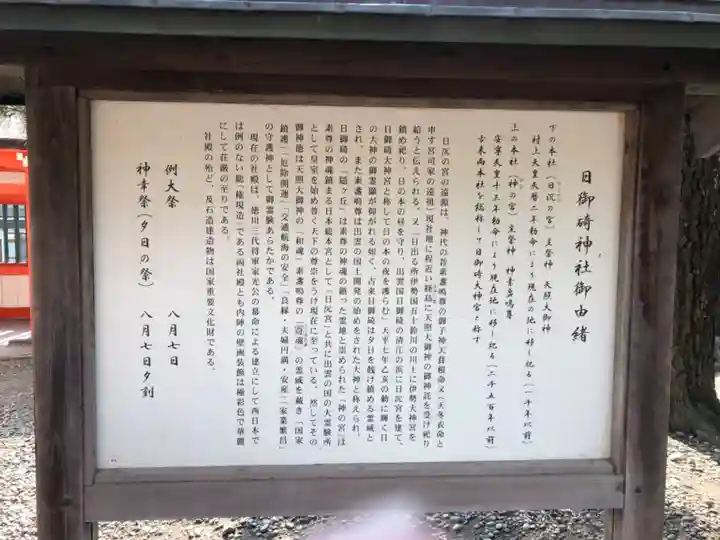 日御碕神社御由緒
下の本社（日沉の宮）主祭神　天照大御神
村上天皇天暦二年勅命により現在の地に移し祀る（一千年以前）
上の本社（神の宮）主祭神　神素盞嗚尊
安寧天皇十三年勅命により現在地に移し祀る（二千五百年以前）
古来両本社を総称して日御碕大神宮と称す
日沉の宮の遠源は、神代の昔素盞嗚尊の御子神天葺根命（又天冬衣命と
申す宮司家の遠祖）現社地に程近い経島に天照大御神の御神託を受け祀り
給うと伝えられる。又「日出る所伊勢国五十鈴川の川上に伊勢大神宮を
鎮め祀り、日の本の昼を守り、出雲国日御碕の清江の浜に日沉宮を建て、
日御碕大神宮と称して日の本の夜を護らむ」天平七年乙亥の勅に輝く日
の大神の御霊顕が仰がれる如く、古来日御碕は夕日を餞け鎮める霊域と
され、また素盞嗚尊は出雲の国土開発の始めをされた大神と称えられ、
日御碕の「隠ヶ丘」は素尊の神魂の鎮った霊地と崇められた「神の宮」は
素尊の神魂鎮まる日本総本宮として「日沉宮」と共に出雲の国の大霊験所
として皇室を始め普く天下の尊崇をうけ現在に至っている。然してその
御神徳は天照大御神の「和魂」素盞嗚尊の「奇魂」の霊威を戴き「国家
鎮護」「厄除開運」「交通航海の安全」「良縁・夫婦円満・安産」「家業繁昌」
の守護神として御霊験あらたかである。
現在の社殿は、徳川三代将軍家光公の幕命による建立にして西日本で
は例のない総「権現造」である両社殿とも内陣の壁画装飾は極彩色で華麗
にして荘厳の至りである。
社殿の殆ど、及石造建造物は国家重要文化財である。
例大祭　八月七日
神幸祭（夕日の祭）　八月七日夕刻